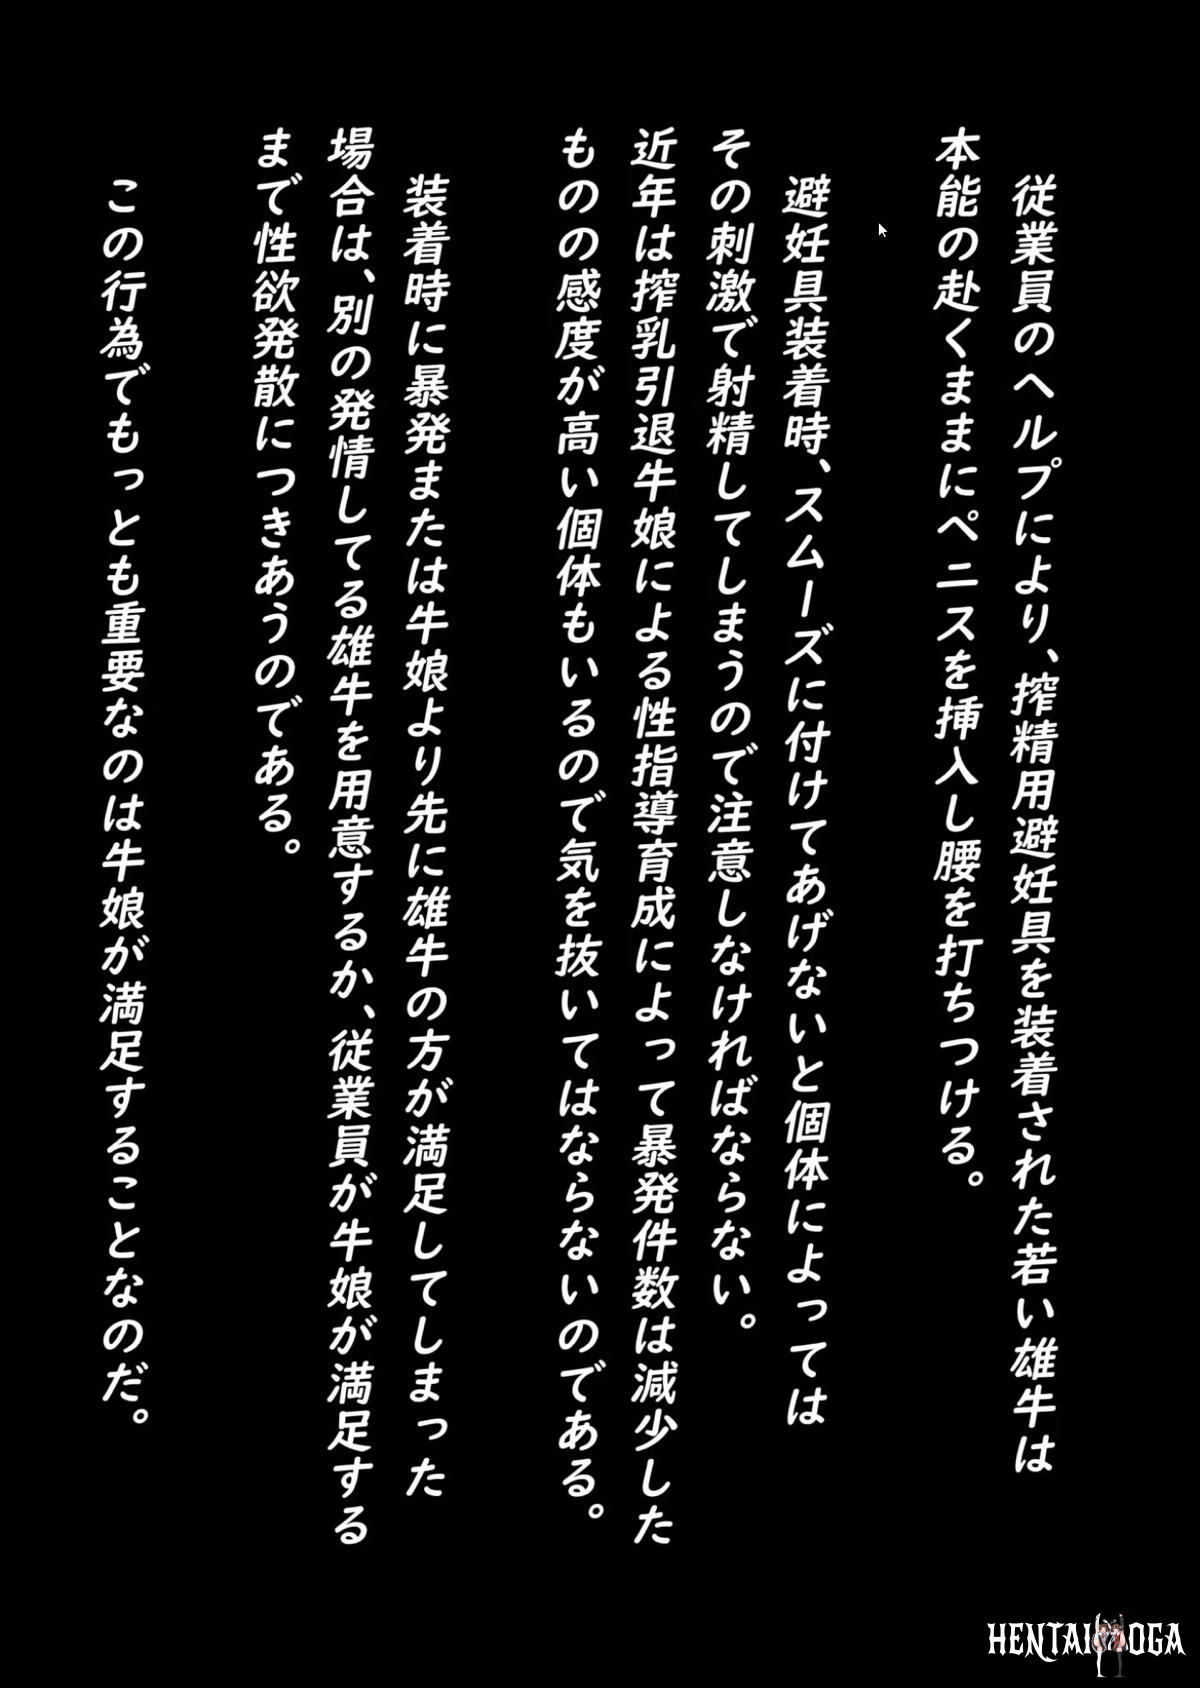 従業員のヘルプにより、搾精用避妊具を装着された若い雄牛は
本能の赴くままにペニスを挿入し腰を打ちつける。
避妊具装着時、スムーズに付けてあげないと個体によっては
その刺激で射精してしまうので注意しなければならない。
近年は搾乳引退牛娘による性指導育成によって暴発件数は減少した
ものの感度が高い個体もいるので気を抜いてはならないのである。
装着時に暴発または牛娘より先に雄牛の方が満足してしまった
場合は、別の発情してる雄牛を用意するか、従業員が牛娘が満足する
まで性欲発散につきあうのである。
この行為でもっとも重要なのは牛娘が満足することなのだ。
HENTAI OGA